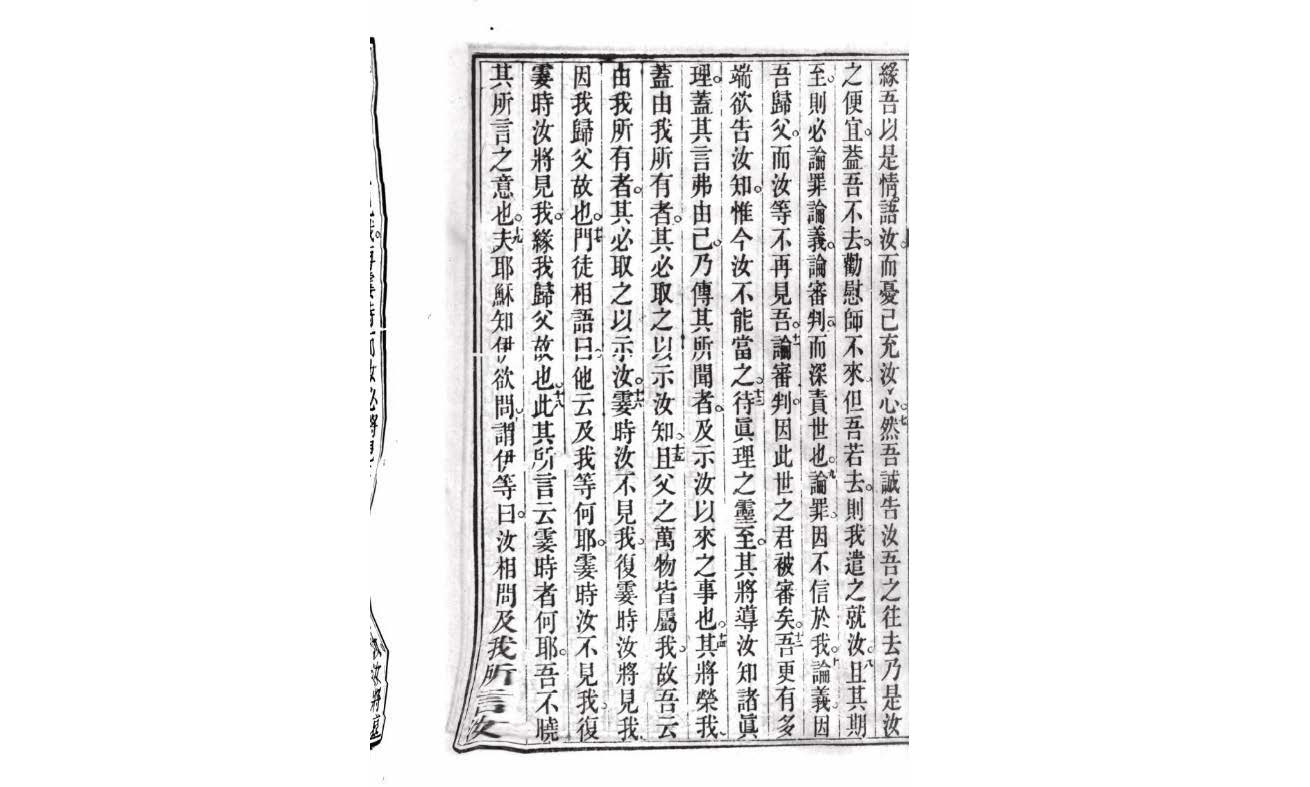 緣吾以是情語汝。而憂已充汝心。七然吾誠告汝吾之往去乃是汝
之便宜。葢吾不去。勸慰師不來。但吾若去。則我遣之就汝。八且其期
至。則必論罪論義。論審判。而深責世也。九論罪。因不信於我。十論義。因
吾歸父。而汝等不再見吾。十一論審判。因此世之君被審矣。十二吾更有多
端欲告汝知。惟今汝不能當之。十三待眞理之靈至。其將導汝知諸眞
理。蓋其言弗由己。乃傳其所聞者。及示汝以來之事也。十四其將榮我。
蓋由我所有者。其必取之以示汝知。十五且父之萬物皆屬我。故吾云
由我所有者。其必取之以示汝。十六霎時汝不見我。復霎時汝將見我
因我歸父故也。十七門徒相語曰。他云及我等何耶。霎時汝不見我。復
霎時汝將見我。緣我歸父故也。十八此其所言云霎時者何耶。吾不曉
其所言之意也。十九夫耶穌知伊欲問。謂伊等曰。汝相問及我所言汝